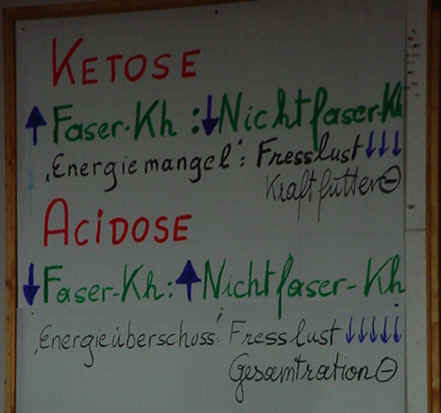 KETOSE
↑Faser-Kh:↓Nichtfaser-Kh
‚Energiemangel‘: Fresslust↓↓↓
Kraftfutter⊖
ACiDOSE
↓Faser-Kh:↑Nichtfaser-Kh
‚Energieüberschuss‘: Fresslust↓↓↓↓↓
Gesamtration⊖